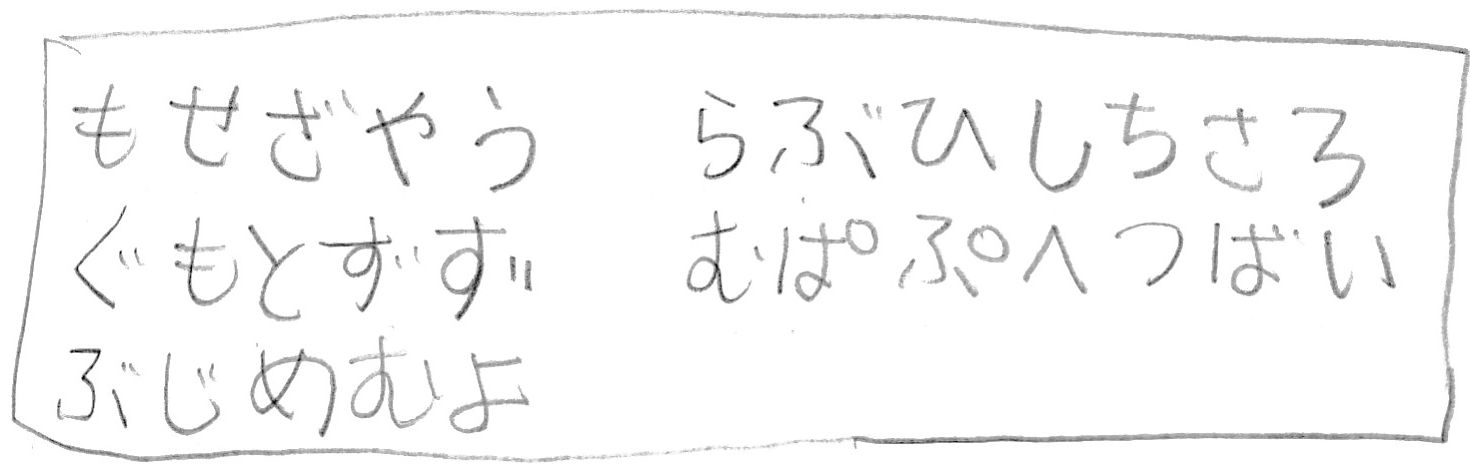 もせざやう らぶひしちさろ
ぐもとずず むぱぷへつばい
ぶじめむよ